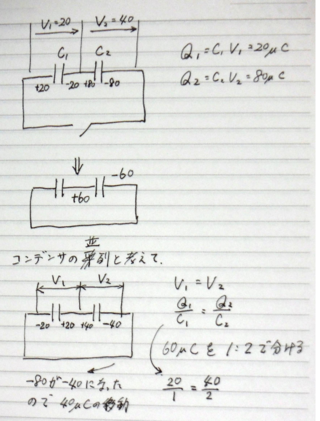 V₁=20 V₂=40
C₁ C₂
+20 -20 +80 -80
Q₁=C₁V₁=20μC
Q₂=C₂V₂=80μC
-60
+60
並
コンデンサの列と考えて.
V₁ V₂
-20 +20 +40 -40
V₁=V₂
Q₁/C₁=Q₂/C₂
60μCを1:2で分ける
20/1=40/2
-80が-40になった
ので40μCの移動